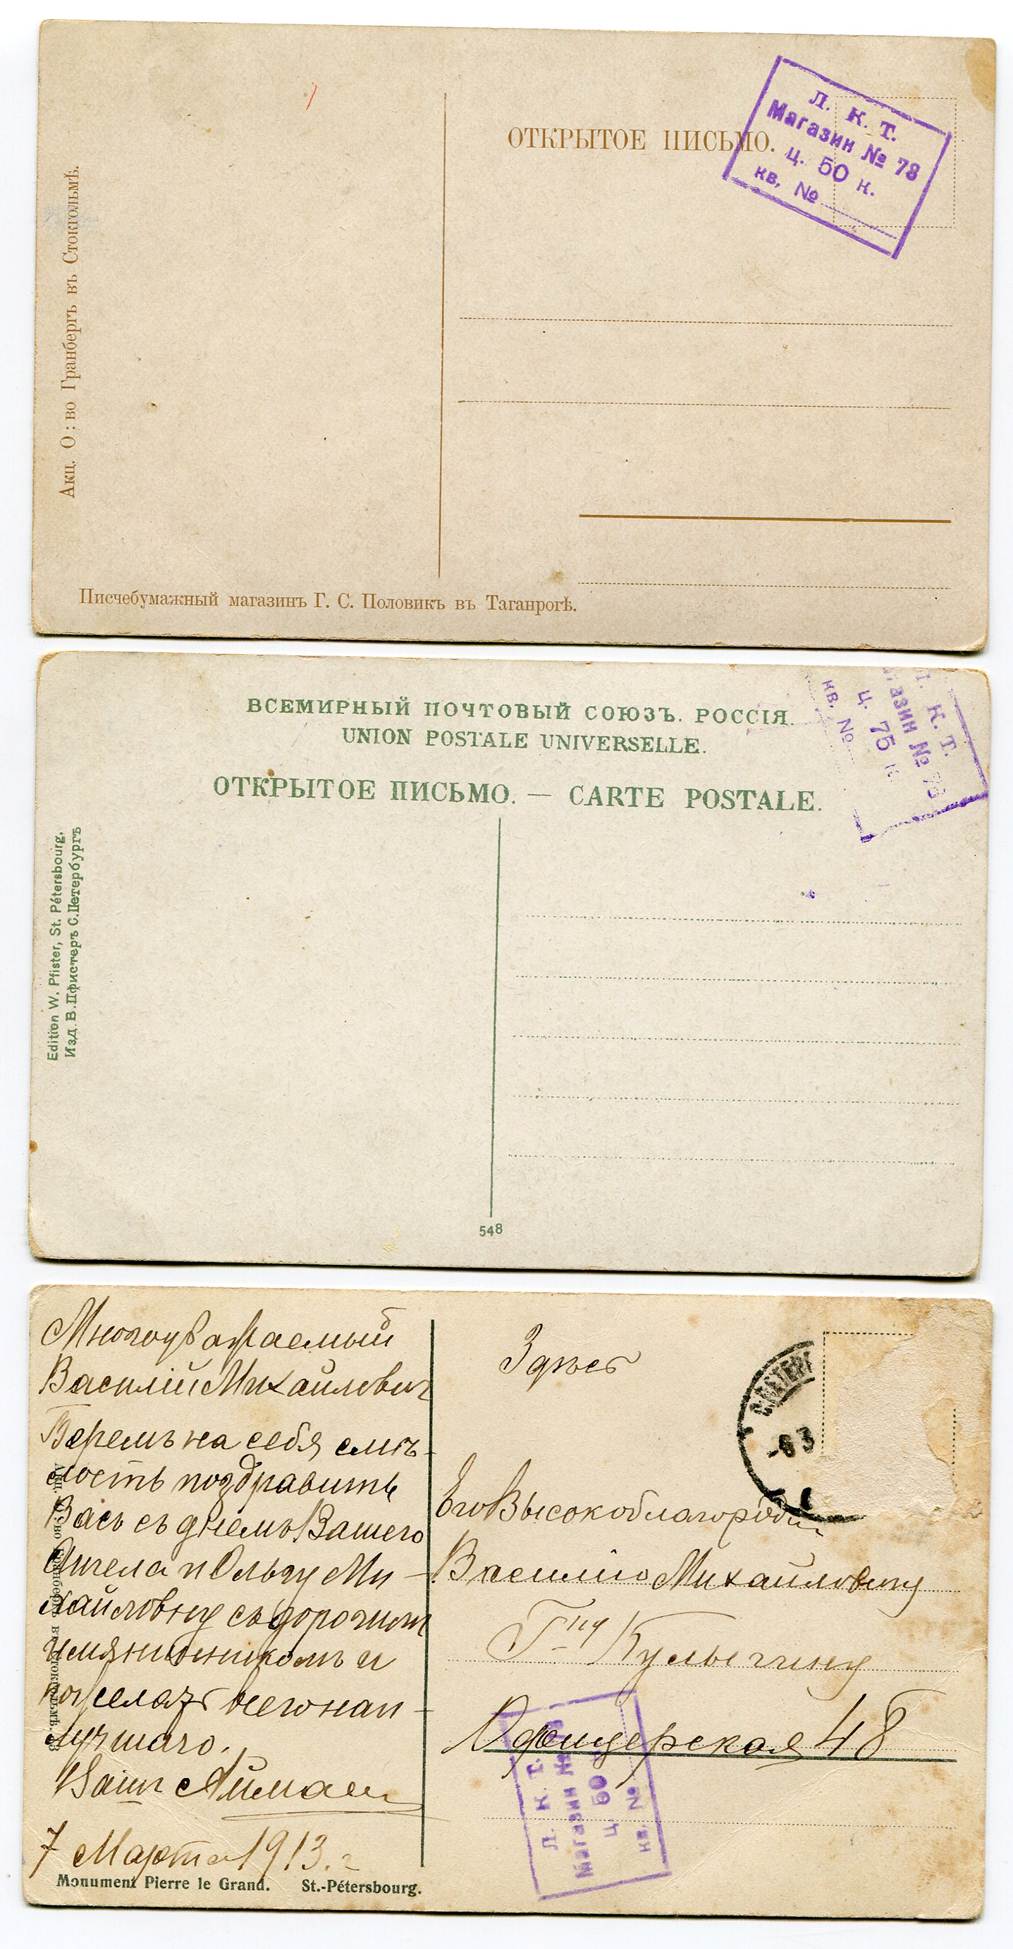 ОТКРЫТОЕ ПИСЬМО.
Л. К. Т.
Магазин № 78
ц. 50 к.
кв. №
Акц. О:во Гранбергъ въ Стокгольмѣ.
Писчебумажный магазинъ Г. С. Половикъ въ Таганрогѣ.
ВСЕМИРНЫЙ ПОЧТОВЫЙ СОЮЗЪ. РОССІЯ.
UNION POSTALE UNIVERSELLE.
ОТКРЫТОЕ ПИСЬМО. — CARTE POSTALE.
Л. К. Т.
Магазин № 78
ц. 75 к
кв. №
Edition W. Pfister, St. Pétersbourg.
Изд. В. Пфистеръ С.Петербургъ
548
Многоуважаемый
Василій Михайлович
Беремъ на себя смѣ-
лость поздравить
Васъ съ днемъ Вашего
Ангела и Ольгу Ми-
хайловну съ дорогим
имянинникомъ и
пожелать всего наи-
лучшаго.
Ваш
7 Марта 1913. г
Monument Pierre le Grand. St.-Pétersbourg.
Здѣсь
Его Высокоблагородію
Василію Михайловичу
Г-ну Кулыгину
Офицерская 48
Л. К. Т.
Магазин №
ц. 50
кв. №